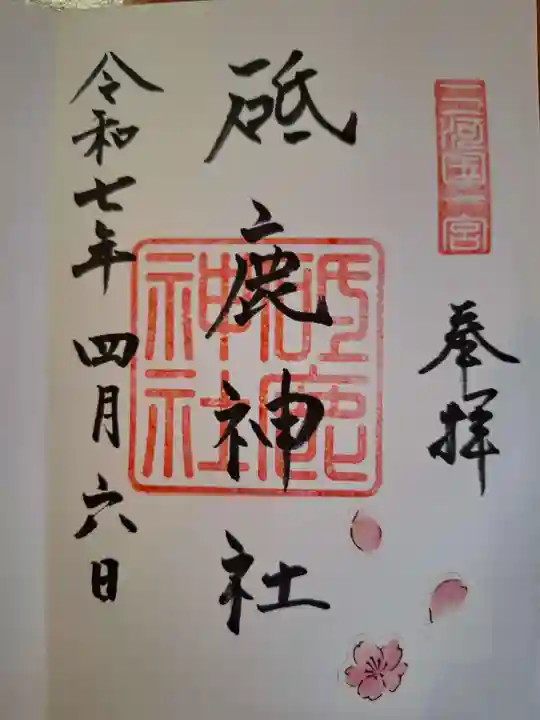 三河國一宮
奉拝
砥鹿神社
砥鹿神社
令和七年四月六日